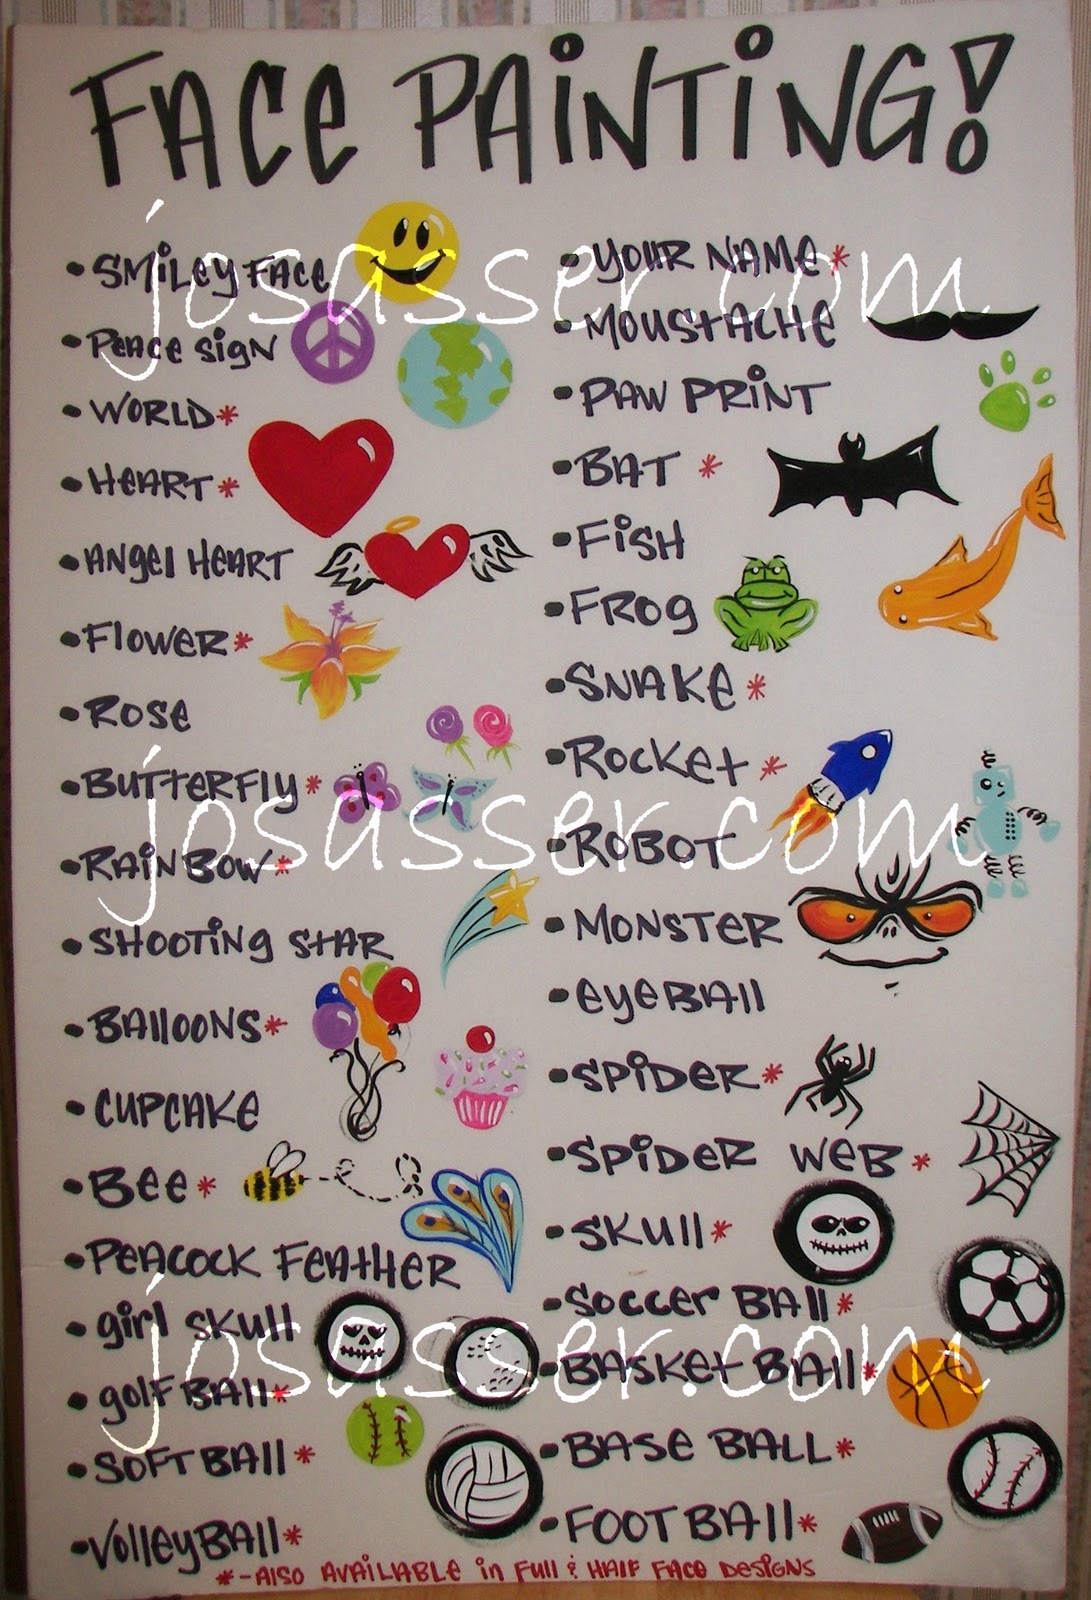 FACE PAINTING!
• SMILEY FACE
• PEACE SIGN
• WORLD*
• HEART*
• ANGEL HEART
• FLOWER*
• ROSE
• BUTTERFLY*
• RAINBOW*
• SHOOTING STAR
• BALLOONS*
• CUPCAKE
• BEE*
• PEACOCK FEATHER
• GIRL SKULL
• GOLF BALL*
• SOFTBALL*
• VOLLEYBALL*
• YOUR NAME*
• MOUSTACHE
• PAW PRINT
• BAT*
• FISH
• FROG
• SNAKE*
• ROCKET*
• ROBOT
• MONSTER
• EYEBALL
• SPIDER*
• SPIDER WEB*
• SKULL*
• SOCCER BALL*
• BASKET BALL*
• BASE BALL*
• FOOTBALL*
*-ALSO AVAILABLE IN FULL & HALF FACE DESIGNS
josasser.com
josasser.com
josasser.com